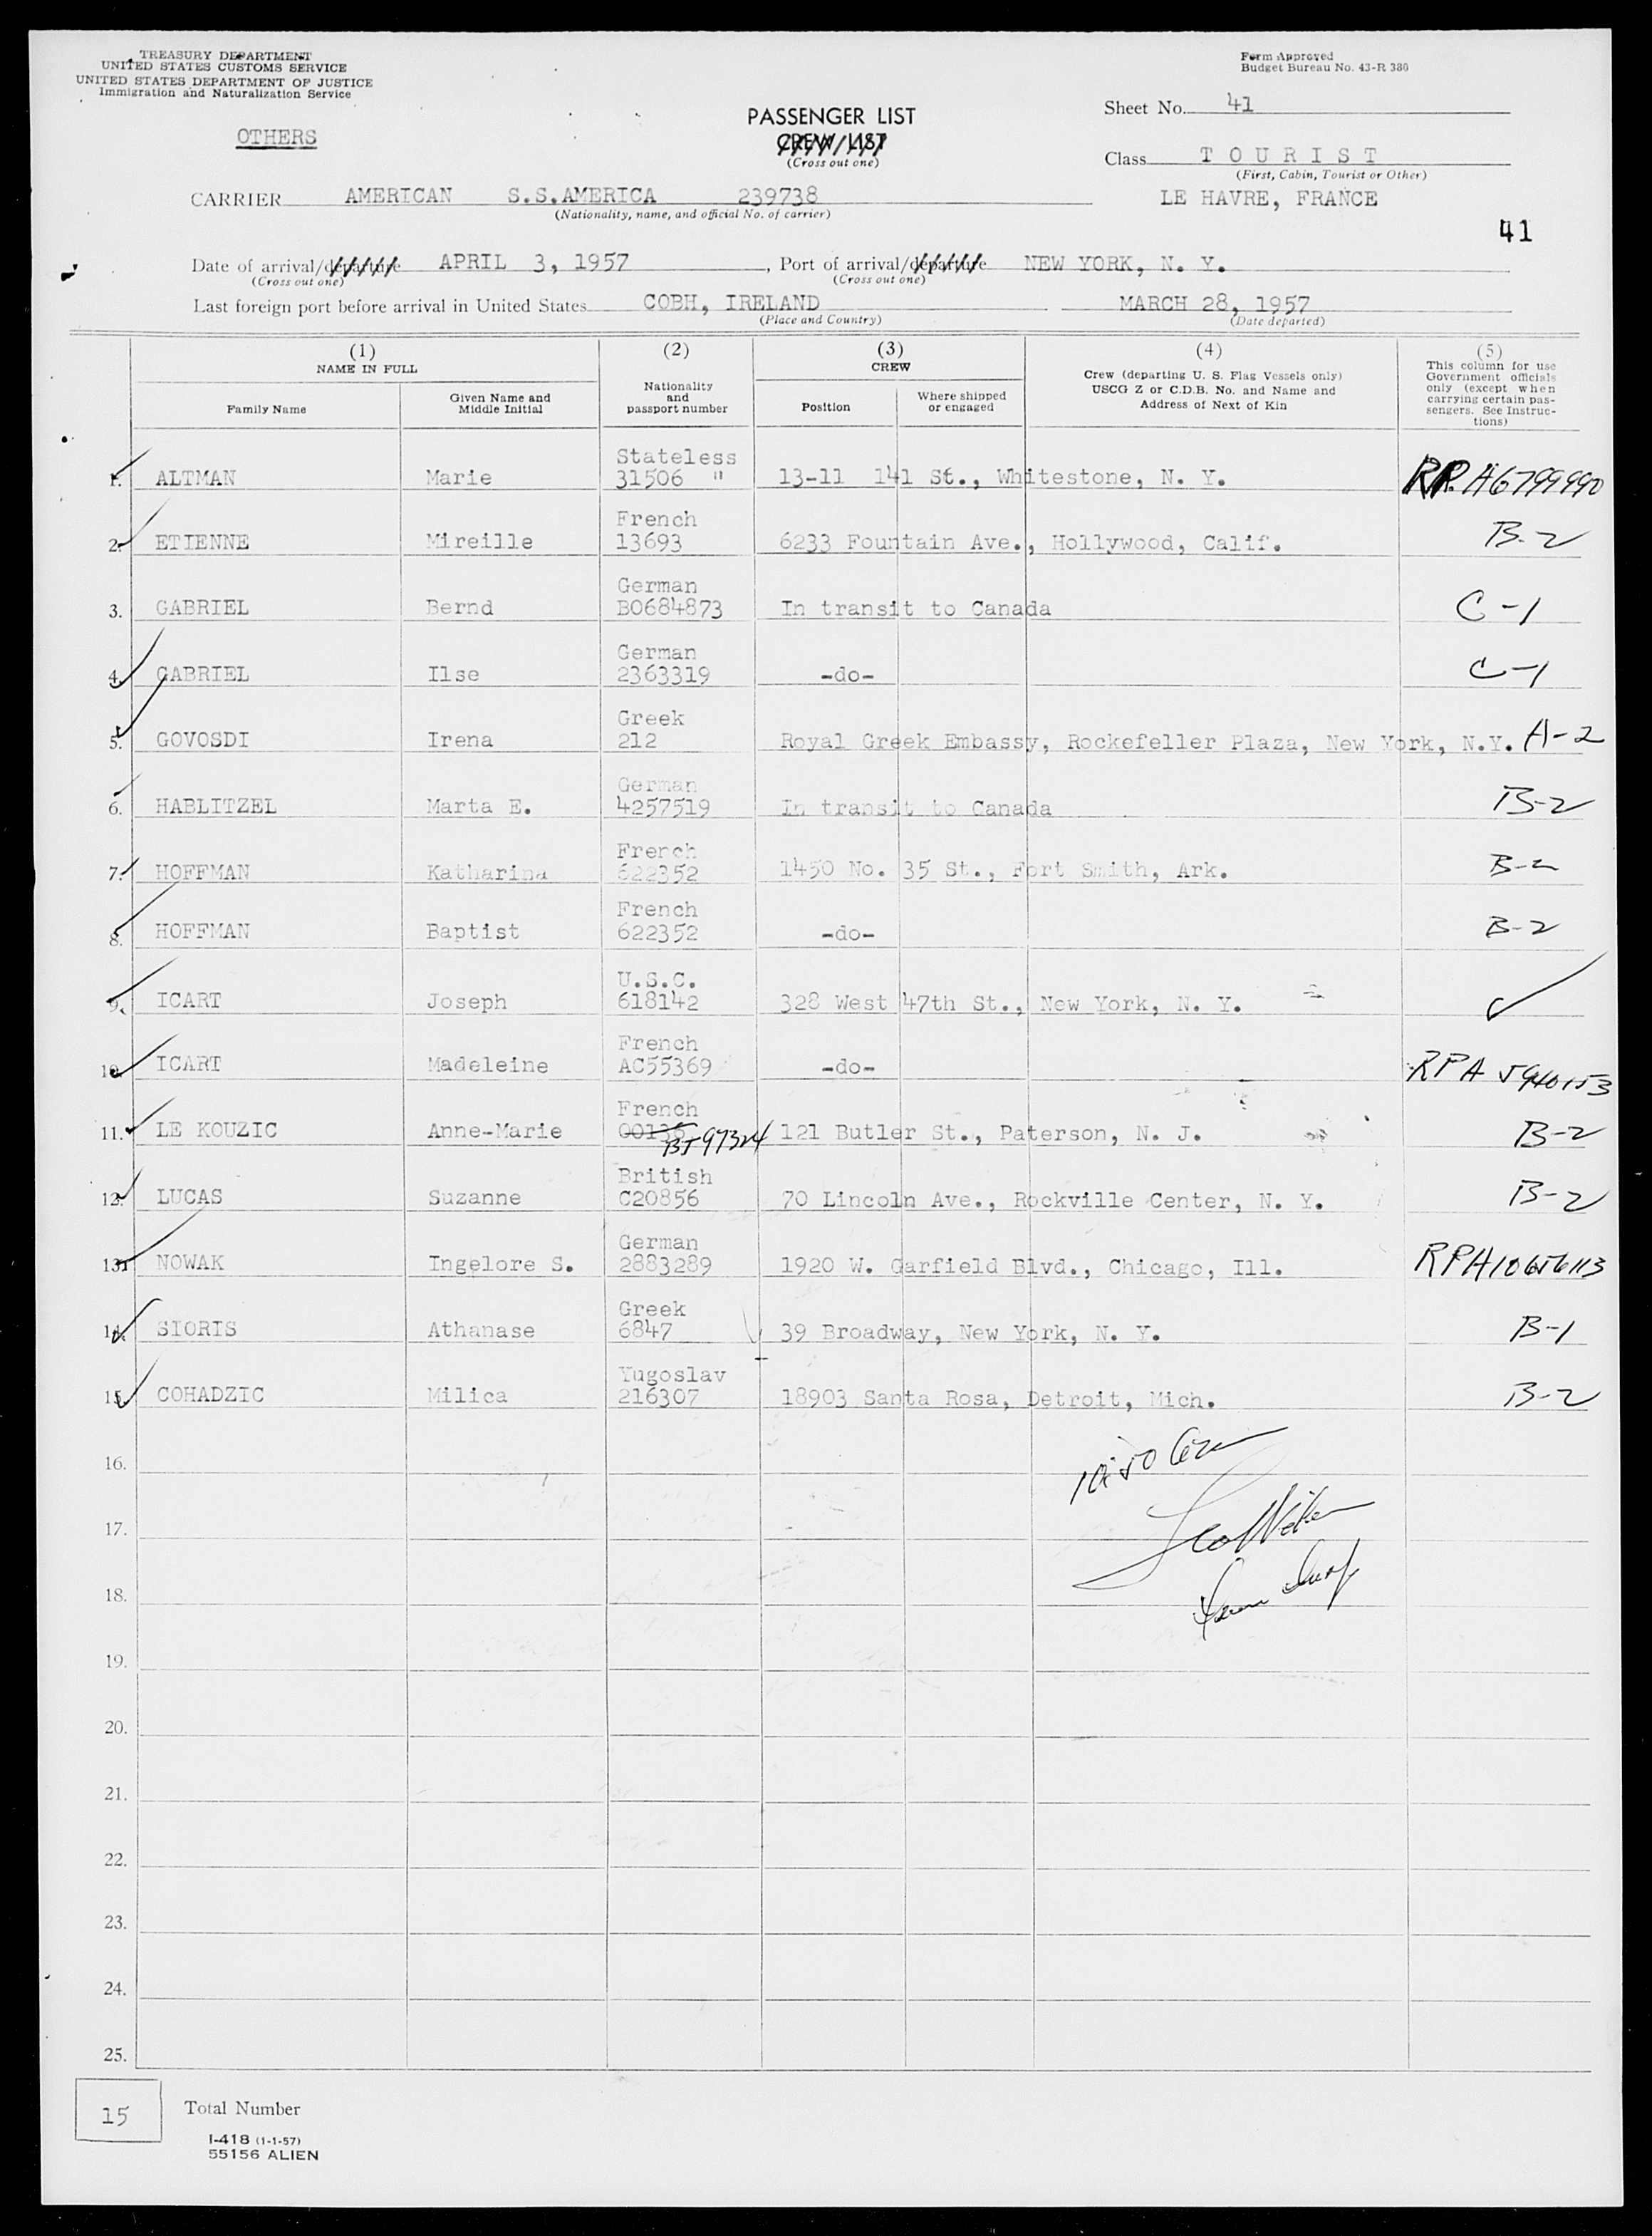 TREASURY DEPARTMENT
UNITED STATES CUSTOMS SERVICE
UNITED STATES DEPARTMENT OF JUSTICE
Immigration and Naturalization Service
Form Approved
Budget Bureau No. 43-R 380
OTHERS
PASSENGER LIST
CREW LIST
(Cross out one)
Sheet No. 41
Class T O U R I S T
(First, Cabin, Tourist or Other)
CARRIER AMERICAN S.S.AMERICA 239738 LE HAVRE, FRANCE
(Nationality, name, and official No. of carrier)
41
Date of arrival/departure APRIL 3, 1957, Port of arrival/departure NEW YORK, N. Y.
(Cross out one) (Cross out one)
Last foreign port before arrival in United States COBH, IRELAND MARCH 28, 1957
(Place and Country) (Date departed)
(1) NAME IN FULL
Family Name
Given Name and Middle Initial
(2)
Nationality and passport number
(3) CREW
Position
Where shipped or engaged
(4)
Crew (departing U. S. Flag Vessels only)
USCG Z or C.D.B. No. and Name and
Address of Next of Kin
(5)
This column for use
Government officials
only (except when
carrying certain pas-
sengers. See Instruc-
tions)
Stateless
1. ALTMAN Marie 31506 " 13-11 141 St., Whitestone, N. Y. RP A6799990
French
2. ETIENNE Mireille 13693 6233 Fountain Ave., Hollywood, Calif. B-2
German
3. GABRIEL Bernd B0684873 In transit to Canada C-1
German
4. GABRIEL Ilse 2363319 -do- C-1
Greek
5. GOVOSDI Irena 212 Royal Greek Embassy, Rockefeller Plaza, New York, N.Y. A-2
German
6. HABLITZEL Marta E. 4257519 In transit to Canada B-2
French
7. HOFFMAN Katharina 622352 1450 No. 35 St., Fort Smith, Ark. B-2
French
8. HOFFMAN Baptist 622352 -do- B-2
U.S.C.
9. ICART Joseph 618142 328 West 47th St., New York, N. Y.
French
10. ICART Madeleine AC55369 -do- RPA 5940153
French
11. LE KOUZIC Anne-Marie 00136 BJ97324 121 Butler St., Paterson, N. J. B-2
British
12. LUCAS Suzanne C20856 70 Lincoln Ave., Rockville Center, N. Y. B-2
German
13. NOWAK Ingelore S. 2883289 1920 W. Garfield Blvd., Chicago, Ill. RPA10656113
Greek
14. SIORIS Athanase 6847 39 Broadway, New York, N. Y. B-1
Yugoslav
15. COHADZIC Milica 216307 18903 Santa Rosa, Detroit, Mich. B-2
16.
17.
18.
19.
20.
21.
22.
23.
24.
25.
15 Total Number
I-418 (1-1-57)
55156 ALIEN